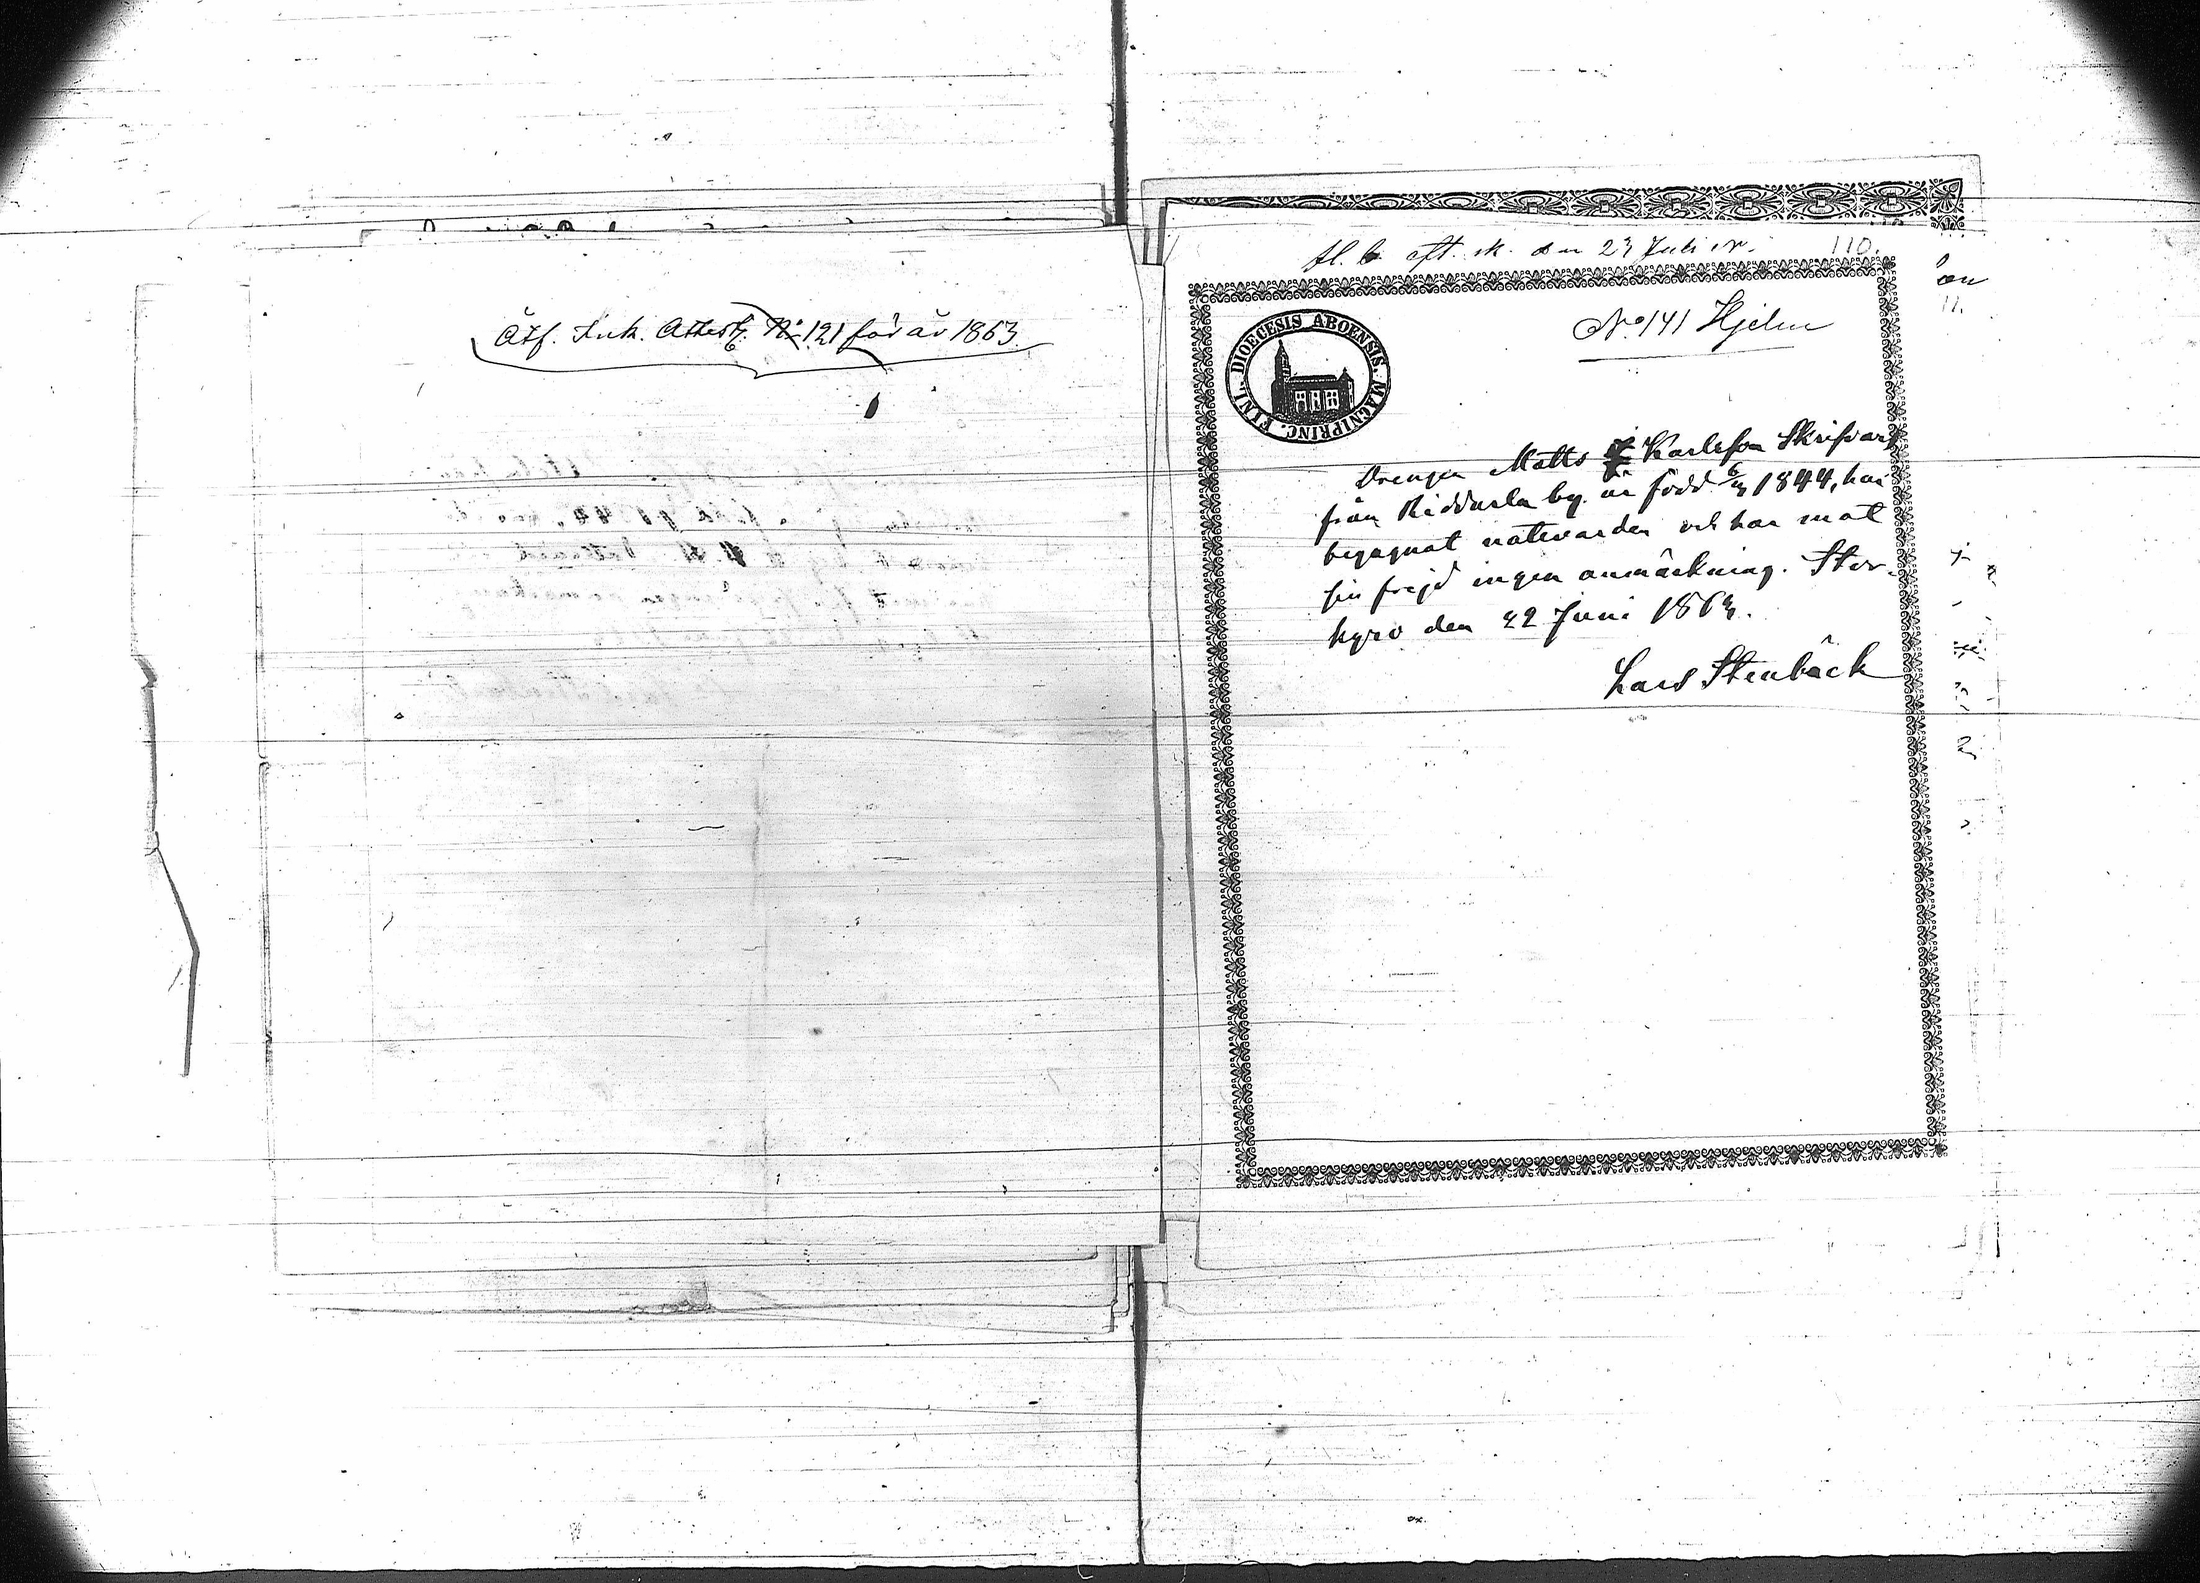 Åtf. Ink. Attest. No 121 för år 1863.
fl. b. eft. sk. den 23 Juli
110.
DIOECESIS ABOENSIS MAGNIPRINC. FINL.
No 141 Hjelm
Drengen Matts Karlsson Skrifvars
från Kiddarla by är född 1844, har
begagnat nattvarden och har mot
sin frejd ingen anmärkning. Stor-
kyro den 22 Juni 1863.
Lars Stenbäck